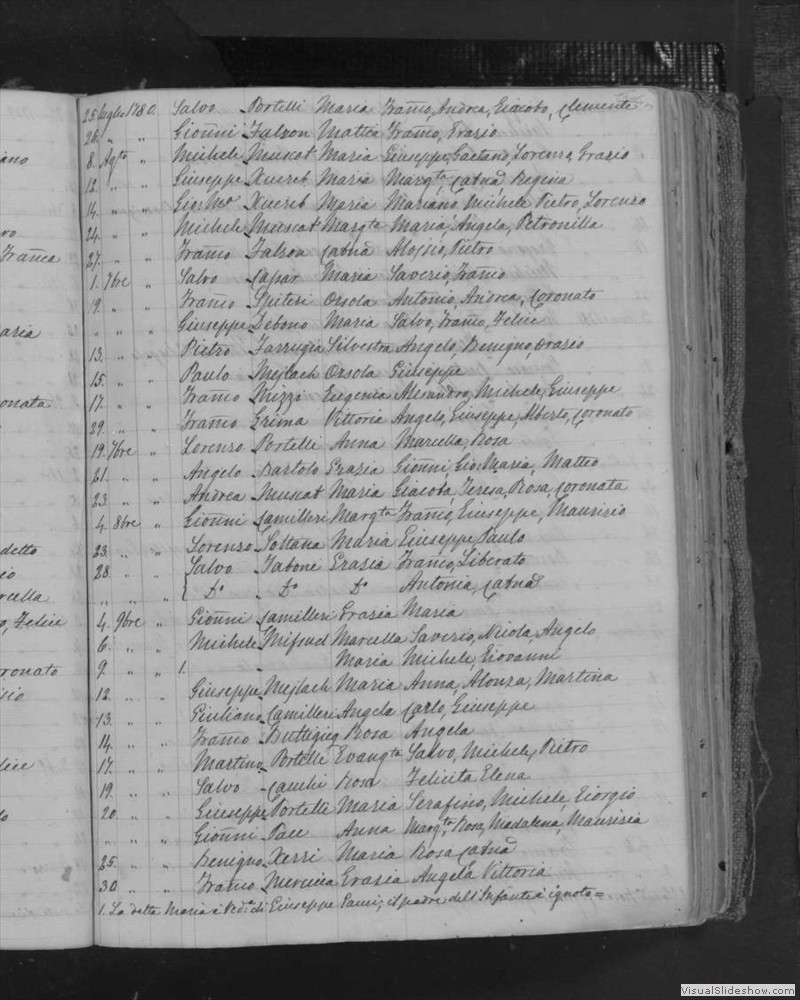 iano
ro
Franca
aria
onata
detto
io
rcella
o, Felice
ronato
sio
lice
o
25 luglio 1780. Salvo Portelli Maria Franco, Andrea, Giacobo, Clemente
26. " " Gionni Falson Mattea Franco, Grazio
8. Agto " Michele Muscat Maria Giuseppe, Gaetano, Lorenzo, Grazio
12. " " Giuseppe Xuereb Maria Margta, Catna Regina
14. " " Gio: Xuereb Maria Mariano, Michele Pietro, Lorenzo
24. " " Michele Muscat Margta Maria, Angela, Petronilla
27. " " Franco Falson Catna Aloisio, Pietro
1. 7bre " Salvo Capar Maria Saverio, Franco
9. " " Franco Spiteri Orsola Antonio, Andrea, Coronato
" " " Giuseppe Debono Maria Salvo, Franco, Felice
13. " " Pietro Farrugia Silvestra Angelo, Benigno, Orazio
15. " " Paulo Mejlach Orsola Giuseppe
17. " " Franco Mizzi Eugenia Alesandro, Michele, Giuseppe
29. " " Franco Grima Vittoria Angelo, Giuseppe, Alberto, Coronato
19. 7bre " Lorenzo Portelli Anna Marcella, Rosa
21. " " Angelo Bartolo Grazia Gionni, Gio: Maria, Matteo
23. " " Andrea Muscat Maria Giacoba, Teresa, Rosa, Coronata
4. 8bre " Gionni Camilleri Margta Franco, Giuseppe, Maurizio
23. " " Lorenzo Soltana Maria Giuseppe, Paulo
28. " " Salvo Tabone Grazia Franco, Liberato
" " " Do Do Do Antonia, Catna
4. 9bre " Gionni Camilleri Grazia Maria
6. " " Michele Mifsud Marcella Saverio, Nicola, Angelo
9. " " 1. " Maria Michele, Giovanni
12. " " Giuseppe Mejlach Maria Anna, Alonza, Martina
13. " " Giuliano Camilleri Angela Carlo, Giuseppe
14. " " Franco Buttigieg Rosa Angela
17. " " Martino Portelli Evangta Salvo, Michele, Pietro
19. " " Salvo Rosa Felicita Elena
20. " " Giuseppe Portelli Maria Serafino, Michele, Giorgio
" " " Gionni Pace Anna Margta, Rosa, Madalena, Maurizia
25. " " Benigno Xerri Maria Rosa Catna
30 " " Franco Mercieca Grazia Angela Vittoria
1. La detta Maria è Ved:a di Giuseppe il padre dell'Infante è ignoto=
VisualSlideshow.com